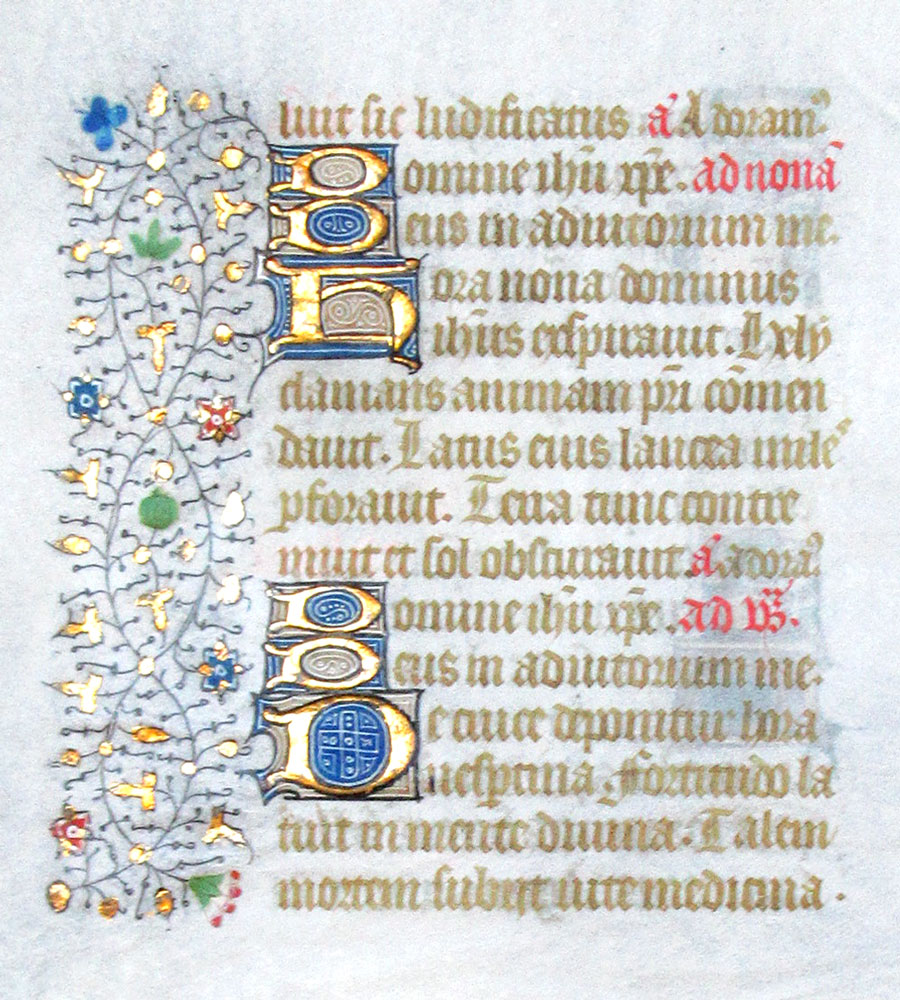 luit sic ludificatus a̅ Adoram᷒
Domine ihũ xp̃e. ad nonã
Deus in adiutorium me.
Hora nona dominus
ihũs expirauit. Hely
clamans animam pr̃i cõmen
dauit. Latus eius lancea mile᷒
pforauit. Terra tunc contre
muit et sol obscurauit. a̅ adora᷒
Domine ihũ xp̃e. ad vs̃.
Deus in adiutorium me.
De cruce deponitur hora
uesptina. fortitudo la
tuit in mente diuina. Talem
mortem subijt uite medicina.